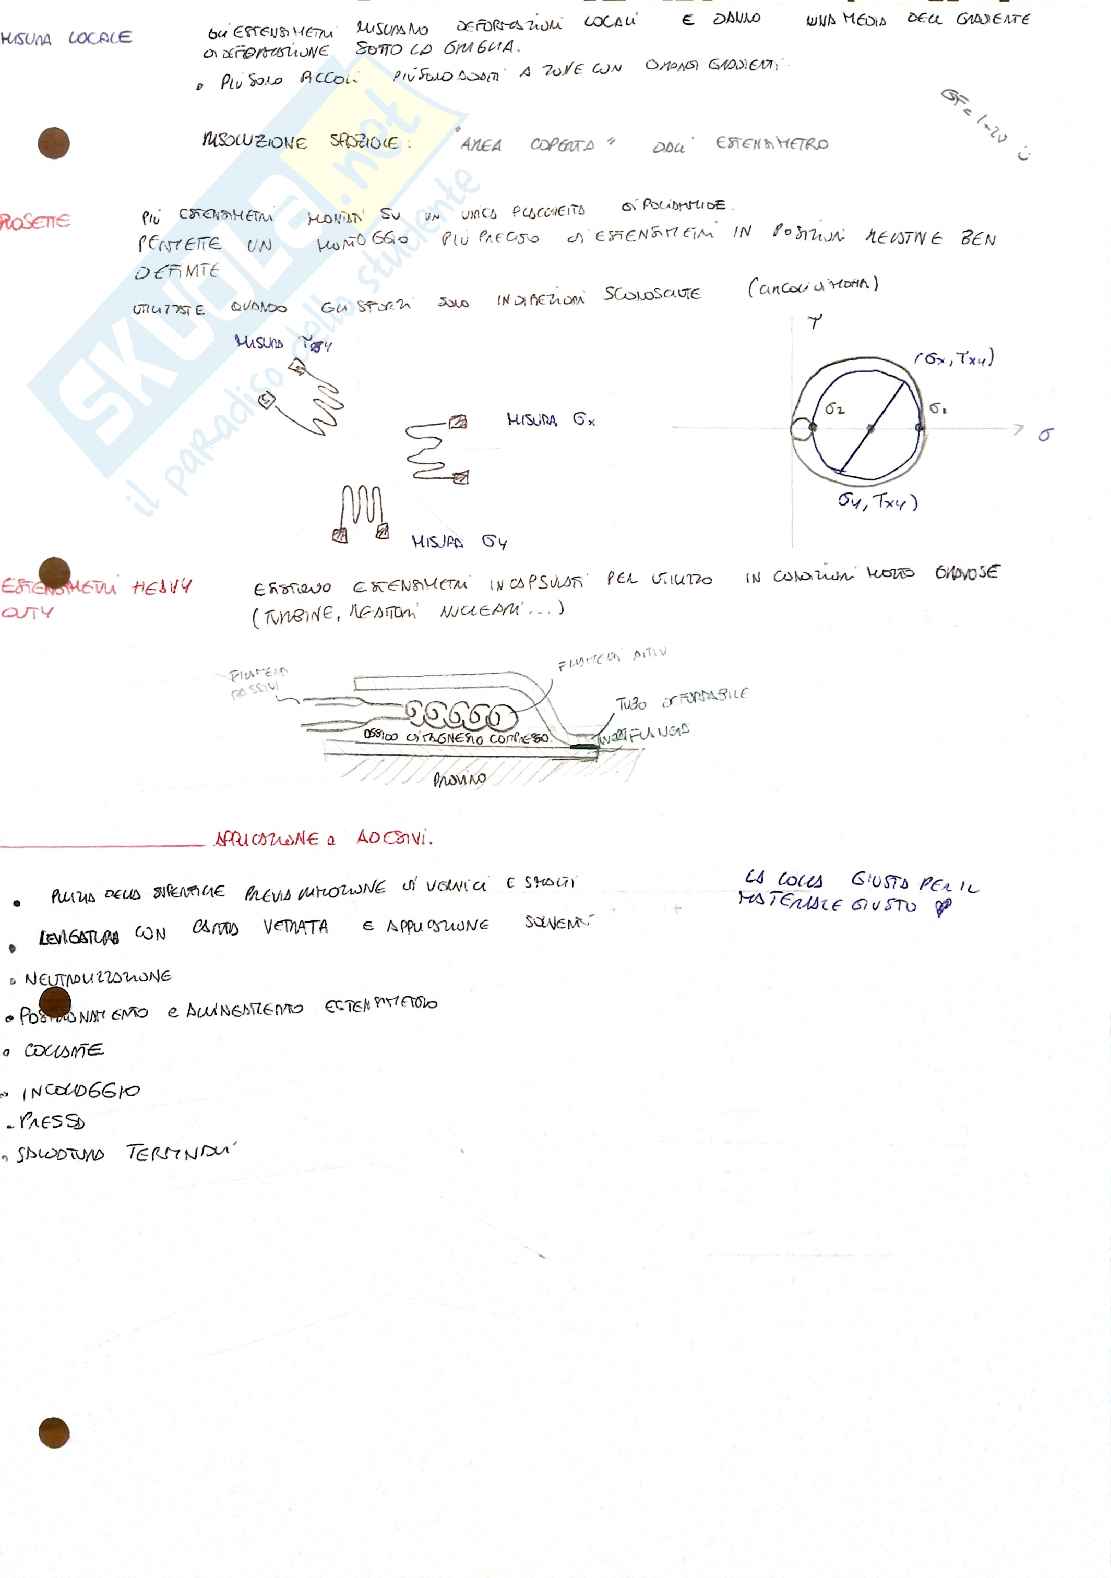 MISURA LOCALE
GLI ESTENSIMETRI MISURANO DEFORMAZIONI LOCALI E DANNO UNA MEDIA DELL GRADIENTE
DI DEFORMAZIONE SOTTO LA GRIGLIA.
• PIÙ SONO PICCOLI PIÙ SONO ADATTI A ZONE CON GRANDI GRADIENTI.
GF = 1-20
RISOLUZIONE SPAZIALE: "AREA COPERTA" DALL' ESTENSIMETRO
ROSETTE
PIÙ ESTENSIMETRI MONTATI SU UN UNICA PLACCHETTA DI POLIAMMIDE.
PERMETTE UN MONTAGGIO PIÙ PRECISO DI ESTENSIMETRI IN POSIZIONI RELATIVE BEN
DEFINITE
UTILIZZATE QUANDO GLI SFORZI SONO IN DIREZIONI SCONOSCIUTE (CERCHI DI MOHR)
MISURA τxy
τ
(σx, τxy)
σ2
σ1
MISURA σx
σ
σy, τxy)
MISURA σy
ESTENSIMETRI HEAVY
DUTY
ESISTONO ESTENSIMETRI INCAPSULATI PER UTILIZZO IN CONDIZIONI MOLTO GRAVOSE
(TURBINE, REATTORI NUCLEARI...)
FILAMENTI
PASSIVI
FILAMENTI ATTIVI
TUBO
OSSIDO DI MAGNESIO COMPRESSO
PROVINO
APPLICAZIONE e ADESIVI.
• PULIZIA DELLA SUPERFICIE PREVIA RIMOZIONE DI VERNICI E SMALTI
LA COLLA GIUSTA PER IL
MATERIALE GIUSTO
• LEVIGATURA CON CARTA VETRATA E APPLICAZIONE SOLVENTI
• NEUTRALIZZAZIONE
• POSIZIONAMENTO e ALLINEAMENTO ESTENSIMETRO
• COLLANTE
• INCOLLAGGIO
• PRESSA
• SALDATURA TERMINALI
SKUOLA.net
il paradiso dello studente